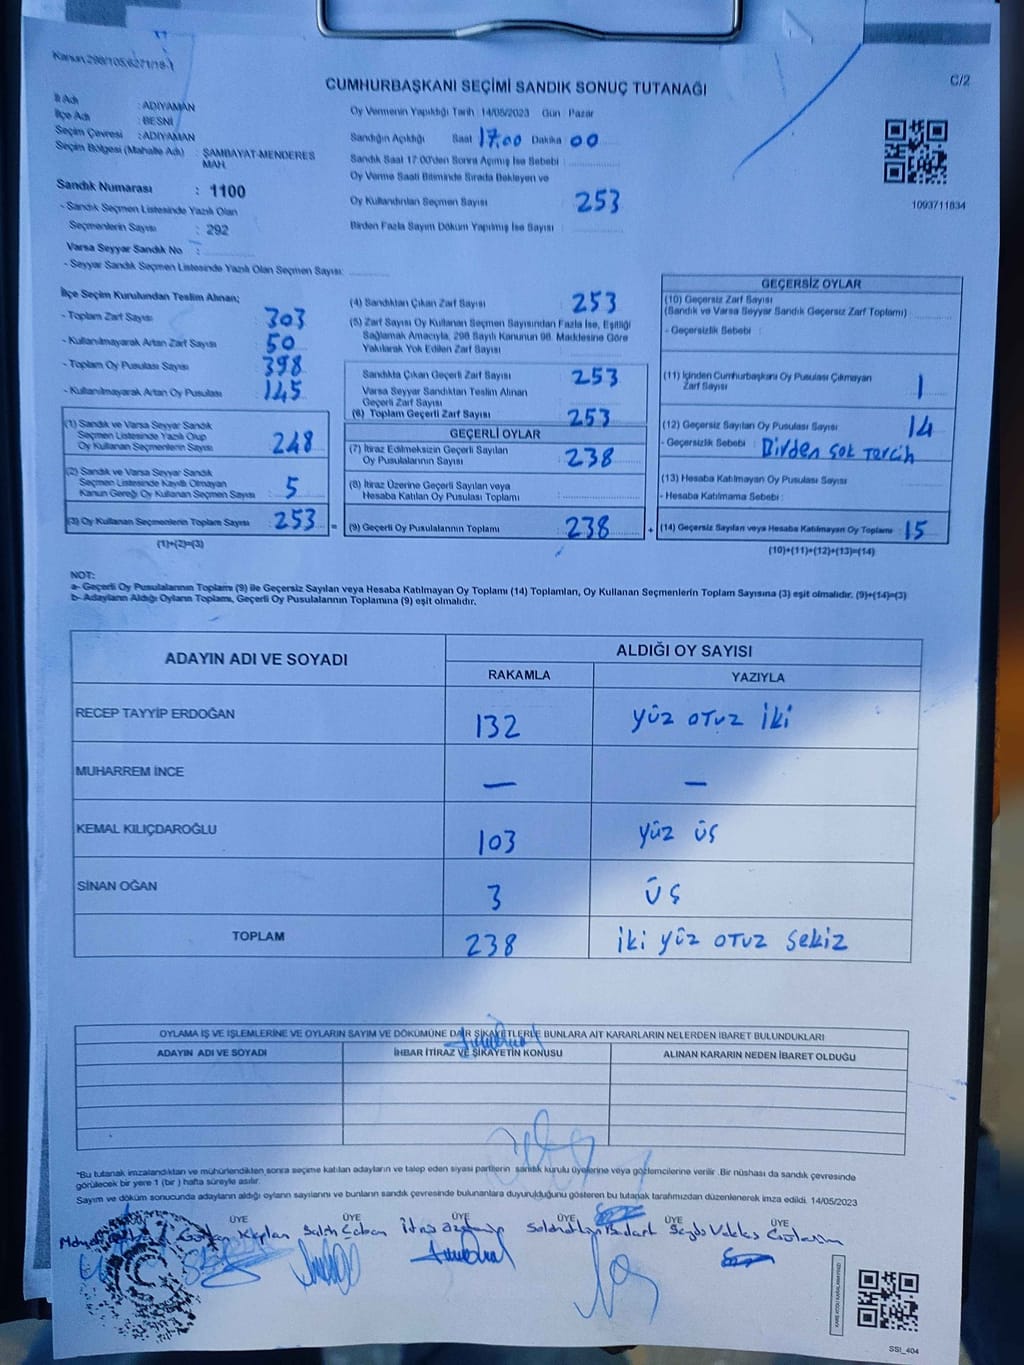 Kanun 298/105,6271/18-1
C/2
CUMHURBAŞKANI SEÇİMİ SANDIK SONUÇ TUTANAĞI
İl Adı : ADIYAMAN
İlçe Adı : BESNİ
Seçim Çevresi : ADIYAMAN
Seçim Bölgesi (Mahalle Adı) : ŞAMBAYAT-MENDERES MAH.
Sandık Numarası : 1100
- Sandık Seçmen Listesinde Yazılı Olan
Seçmenlerin Sayısı : 292
Varsa Seyyar Sandık No :
- Seyyar Sandık Seçmen Listesinde Yazılı Olan Seçmen Sayısı:
Oy Vermenin Yapıldığı Tarih : 14/05/2023 Gün : Pazar
Sandığın Açıldığı Saat 17.00 Dakika 00
Sandık Saat 17:00'den Sonra Açmış İse Sebebi :
Oy Verme Saati Bitiminde Sırada Bekleyen ve
Oy Kullandırılan Seçmen Sayısı 253
Birden Fazla Sayım Döküm Yapılmış İse Sayısı :
1093711834
İlçe Seçim Kurulundan Teslim Alınan;
- Toplam Zarf Sayısı : 303
- Kullanılmayarak Artan Zarf Sayısı : 50
- Toplam Oy Pusulası Sayısı : 398
- Kullanılmayarak Artan Oy Pusulası : 145
(1) Sandık ve Varsa Seyyar Sandık
Seçmen Listesinde Yazılı Olup
Oy Kullanan Seçmenlerin Sayısı : 248
(2) Sandık ve Varsa Seyyar Sandık
Seçmen Listesinde Kayıtlı Olmayan
Kanun Gereği Oy Kullanan Seçmen Sayısı : 5
(3) Oy Kullanan Seçmenlerin Toplam Sayısı : 253 =
(1)+(2)=(3)
(4) Sandıktan Çıkan Zarf Sayısı : 253
(5) Zarf Sayısı Oy Kullanan Seçmen Sayısından Fazla İse, Eşitliği
Sağlamak Amacıyla, 298 Sayılı Kanunun 98. Maddesine Göre
Yakılarak Yok Edilen Zarf Sayısı :
Sandıkta Çıkan Geçerli Zarf Sayısı : 253
Varsa Seyyar Sandıktan Teslim Alınan
Geçerli Zarf Sayısı :
(6) Toplam Geçerli Zarf Sayısı : 253
GEÇERLİ OYLAR
(7) İtiraz Edilmeksizin Geçerli Sayılan
Oy Pusulalarının Sayısı : 238
(8) İtiraz Üzerine Geçerli Sayılan veya
Hesaba Katılan Oy Pusulası Toplamı :
(9) Geçerli Oy Pusulalarının Toplamı : 238 +
GEÇERSİZ OYLAR
(10) Geçersiz Zarf Sayısı
(Sandık ve Varsa Seyyar Sandık Geçersiz Zarf Toplamı) :
- Geçersizlik Sebebi :
(11) İçinden Cumhurbaşkanı Oy Pusulası Çıkmayan
Zarf Sayısı : 1
(12) Geçersiz Sayılan Oy Pusulası Sayısı : 14
- Geçersizlik Sebebi : Birden çok Tercih
(13) Hesaba Katılmayan Oy Pusulası Sayısı :
- Hesaba Katılmama Sebebi :
(14) Geçersiz Sayılan veya Hesaba Katılmayan Oy Toplamı : 15
(10)+(11)+(12)+(13)=(14)
NOT:
a- Geçerli Oy Pusulalarının Toplamı (9) ile Geçersiz Sayılan veya Hesaba Katılmayan Oy Toplamı (14) Toplamları, Oy Kullanan Seçmenlerin Toplam Sayısına (3) eşit olmalıdır. (9)+(14)=(3)
b- Adayların Aldığı Oyların Toplamı, Geçerli Oy Pusulalarının Toplamına (9) eşit olmalıdır.
ADAYIN ADI VE SOYADI
ALDIĞI OY SAYISI
RAKAMLA YAZIYLA
RECEP TAYYİP ERDOĞAN 132 yüz otuz iki
MUHARREM İNCE — —
KEMAL KILIÇDAROĞLU 103 yüz üç
SİNAN OĞAN 3 üç
TOPLAM 238 iki yüz otuz sekiz
OYLAMA İŞ VE İŞLEMLERİNE VE OYLARIN SAYIM VE DÖKÜMÜNE DAİR ŞİKAYETLERLE BUNLARA AİT KARARLARIN NELERDEN İBARET BULUNDUKLARI
ADAYIN ADI VE SOYADI İHBAR İTİRAZ VE ŞİKAYETİN KONUSU ALINAN KARARIN NEDEN İBARET OLDUĞU
*Bu tutanak imzalandıktan ve mühürlendikten sonra seçime katılan adayların ve talep eden siyasi partilerin sandık kurulu üyelerine veya gözlemcilerine verilir. Bir nüshası da sandık çevresinde
görülecek bir yere 1 (bir) hafta süreyle asılır.
Sayım ve döküm sonucunda adayların aldığı oyların sayılarını ve bunların sandık çevresinde bulunanlara duyurulduğunu gösteren bu tutanak tarafımızdan düzenlenerek imza edildi. 14/05/2023
ÜYE ÜYE ÜYE ÜYE ÜYE
Kaplan Salih Çoban
SSI_404